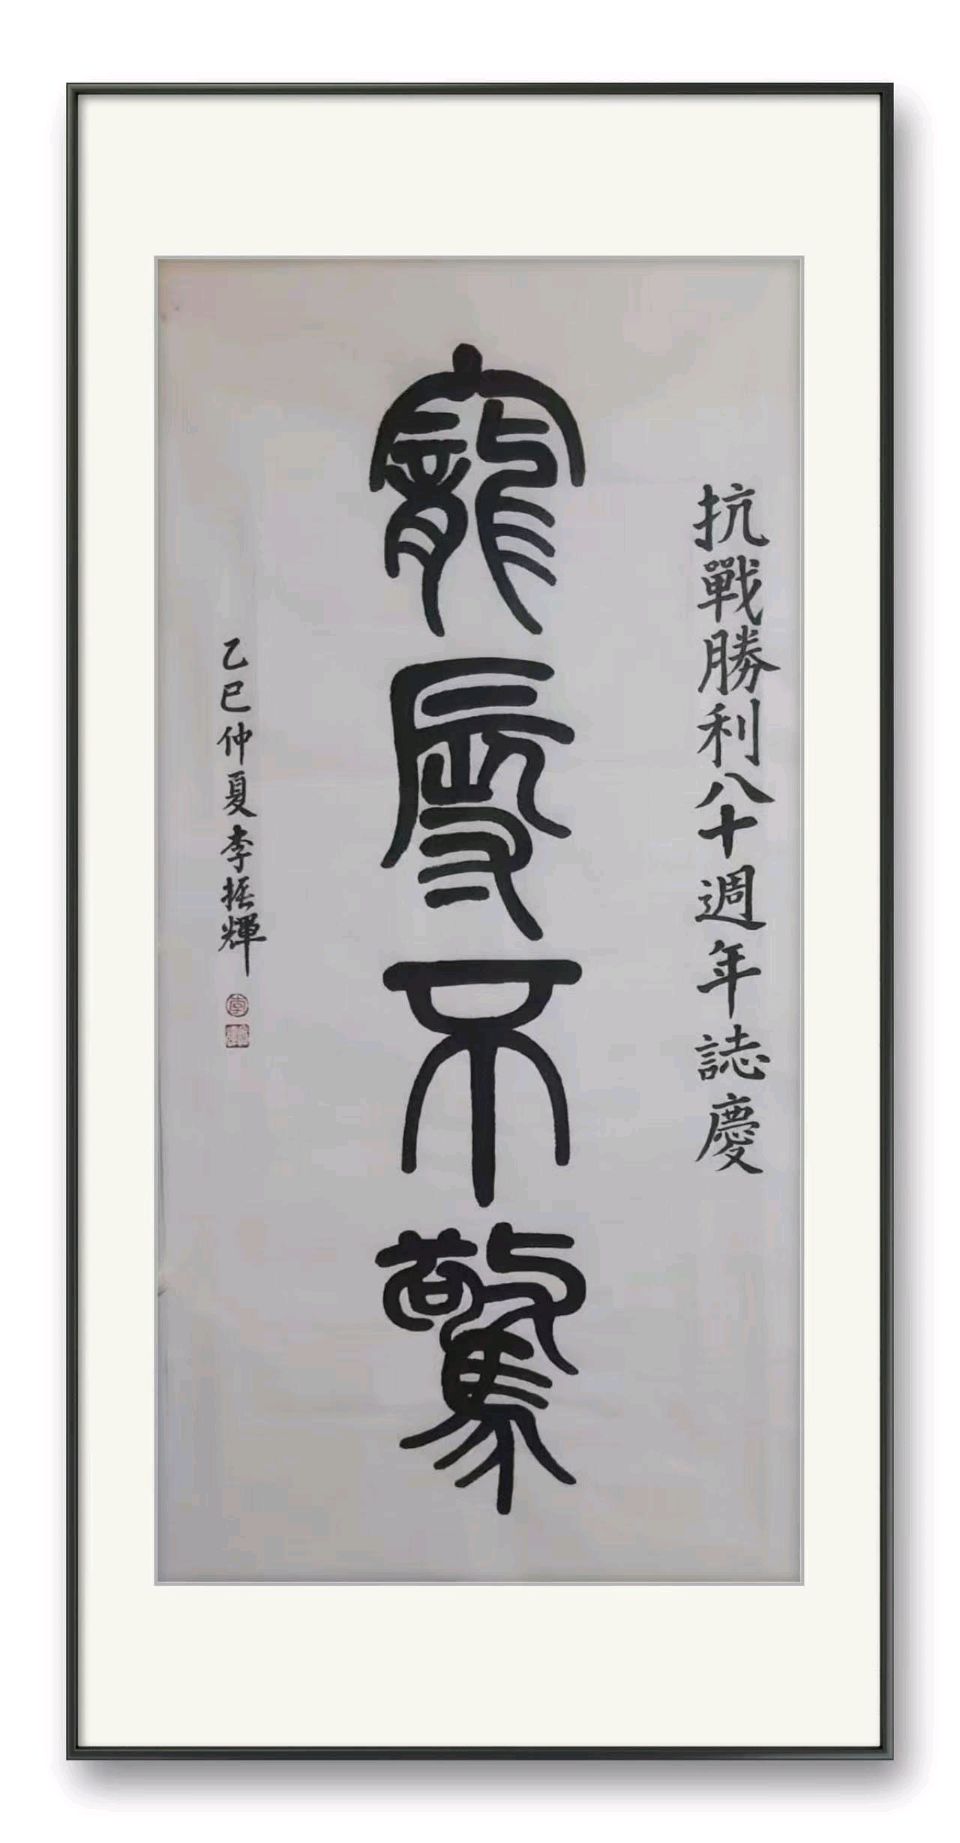 抗戰勝利八十週年誌慶
寵辱不驚
乙巳仲夏李振輝